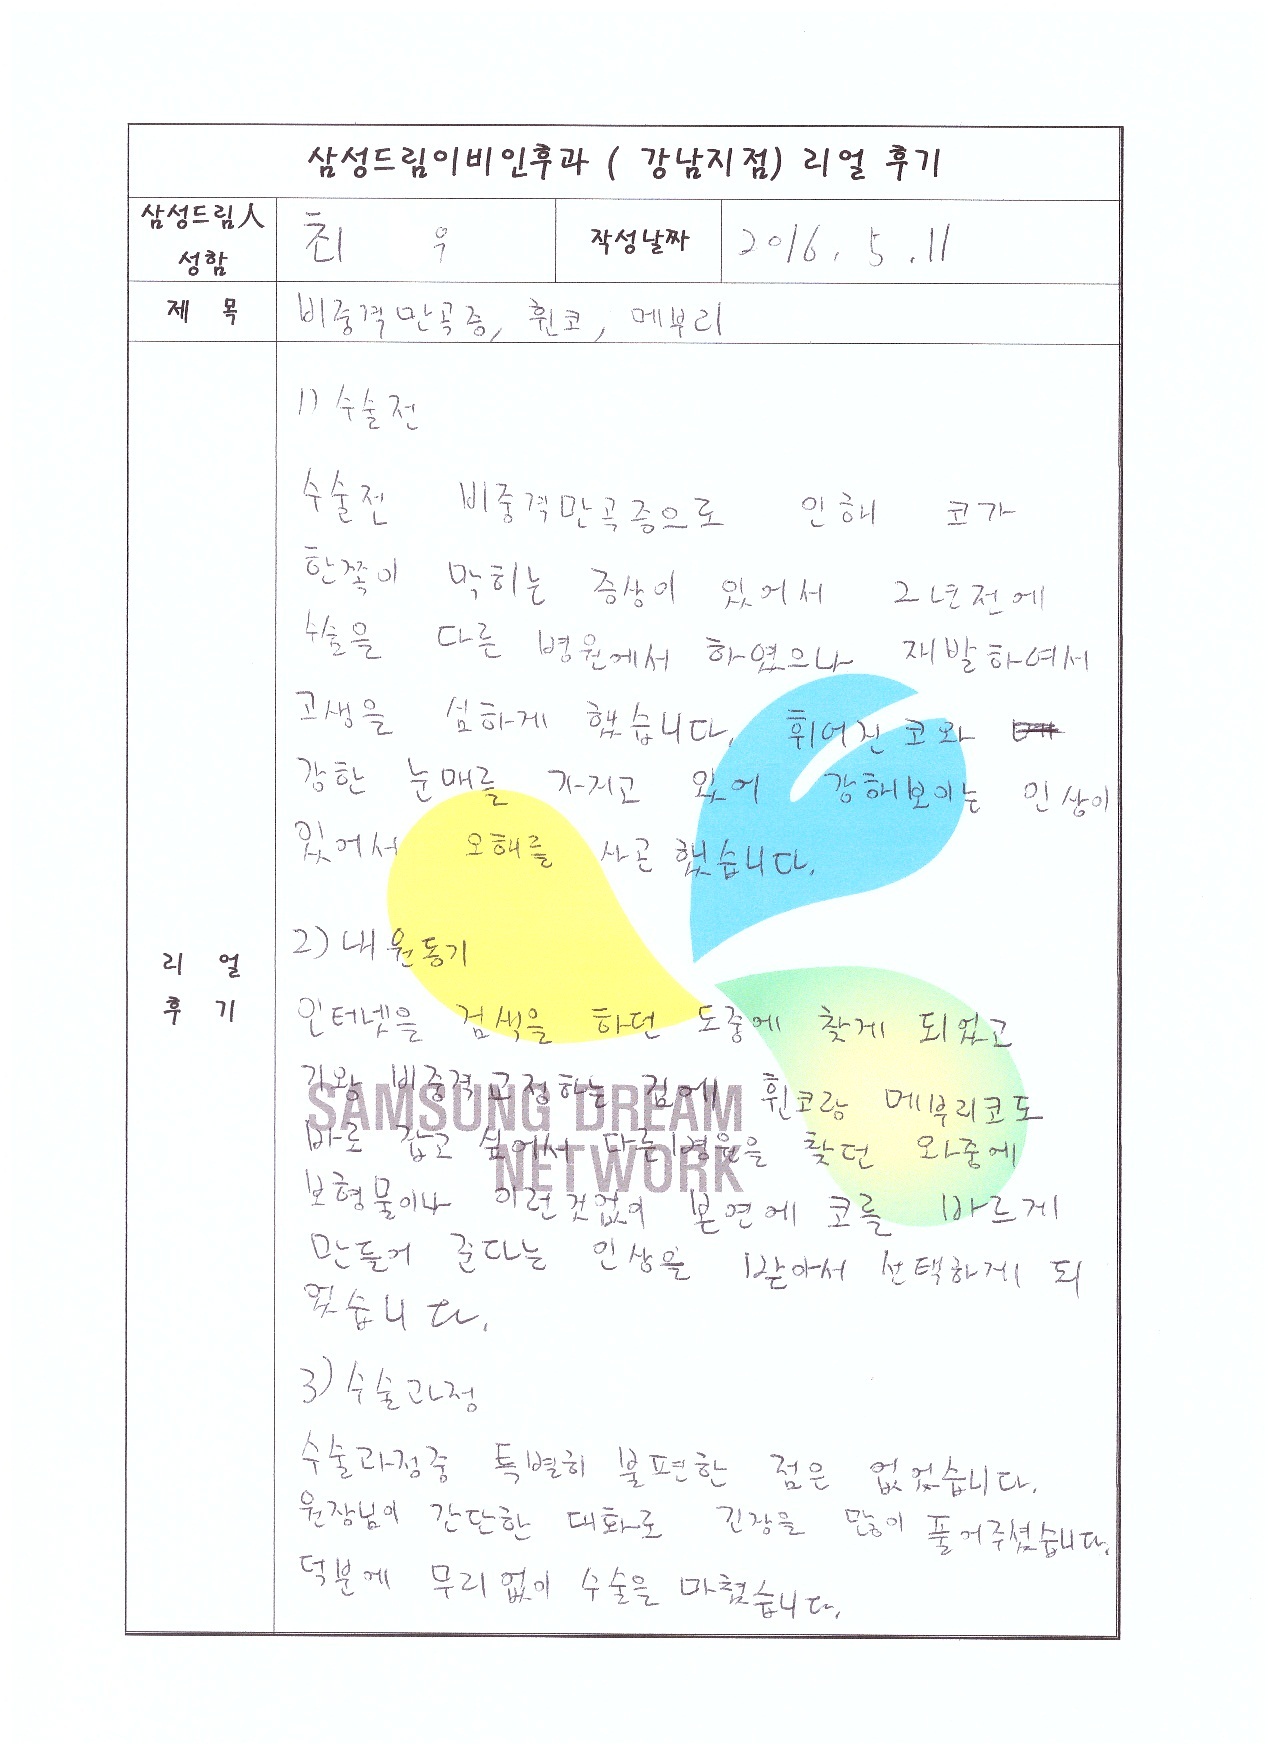 삼성드림이비인후과 ( 강남지점) 리얼 후기
삼성드림人 성함
최 우
작성날짜
2016. 5. 11
제 목
비중격만곡증, 휜코, 메부리
리 얼
후 기
1) 수술전
수술전 비중격만곡증으로 인해 코가
한쪽이 막히는 증상이 있어서 2년전에
수술을 다른 병원에서 하였으나 재발하여서
고생을 심하게 했습니다. 휘어진 코와
강한 눈매를 가지고 있어 강해보이는 인상이
있어서 오해를 사곤 했습니다.
2) 내원동기
인터넷을 검색을 하던 도중에 찾게 되었고
기왕 비중격교정하는 김에 휜코랑 메부리코도
바로 잡고 싶어서 다른병원을 찾던 와중에
보형물이나 이런것없이 본연에 코를 바르게
만들어 준다는 인상을 받아서 선택하게 되
었습니다.
3) 수술과정
수술과정중 특별히 불편한 점은 없었습니다.
원장님이 간단한 대화로 긴장을 많이 풀어주셨습니다.
덕분에 무리없이 수술을 마쳤습니다.
SAMSUNG DREAM
NETWORK